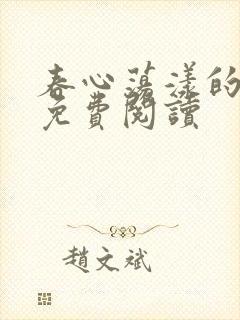 春心荡漾的
免費閱讀
趙文斌